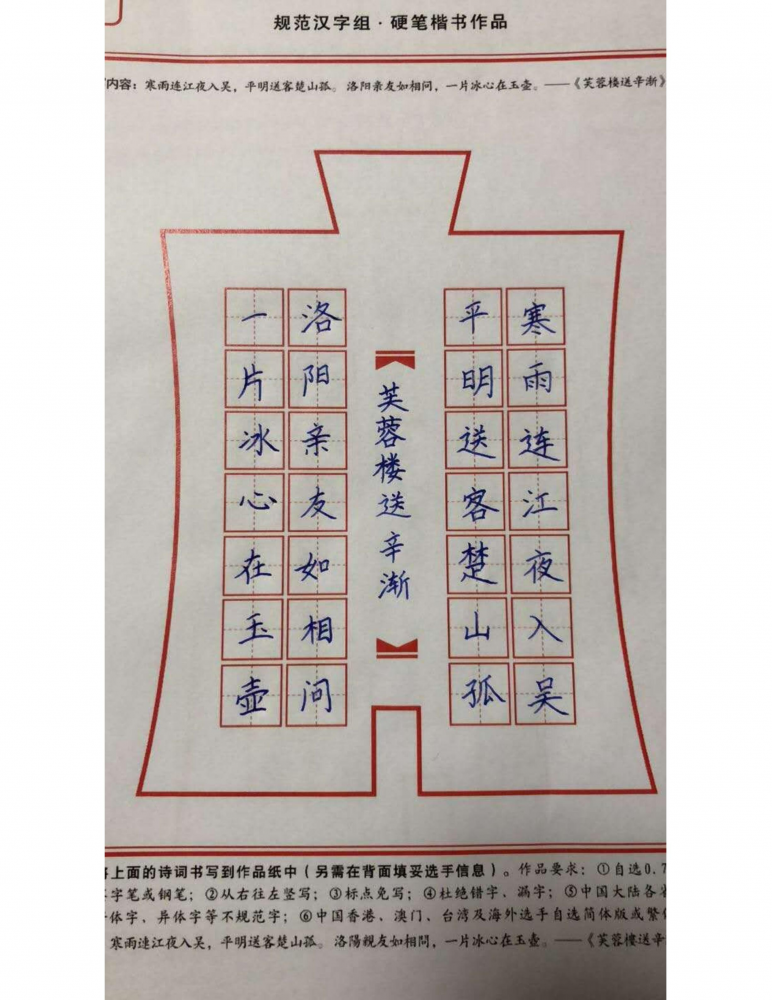 规范汉字组·硬笔楷书作品
内容：寒雨连江夜入吴，平明送客楚山孤。洛阳亲友如相问，一片冰心在玉壶。——《芙蓉楼送辛渐》
寒雨连江夜入吴
平明送客楚山孤
芙蓉楼送辛渐
洛阳亲友如相问
一片冰心在玉壶
上面的诗词书写到作品纸中（另需在背面填妥选手信息）。作品要求：①自选0.7
字笔或钢笔；②从右往左竖写；③标点免写；④杜绝错字、漏字；⑤中国大陆各
体字、异体字等不规范字；⑥中国香港、澳门、台湾及海外选手自选简体版或繁
寒雨連江夜入吴，平明送客楚山孤。洛陽親友如相問，一片冰心在玉壺。——《芙蓉樓送辛